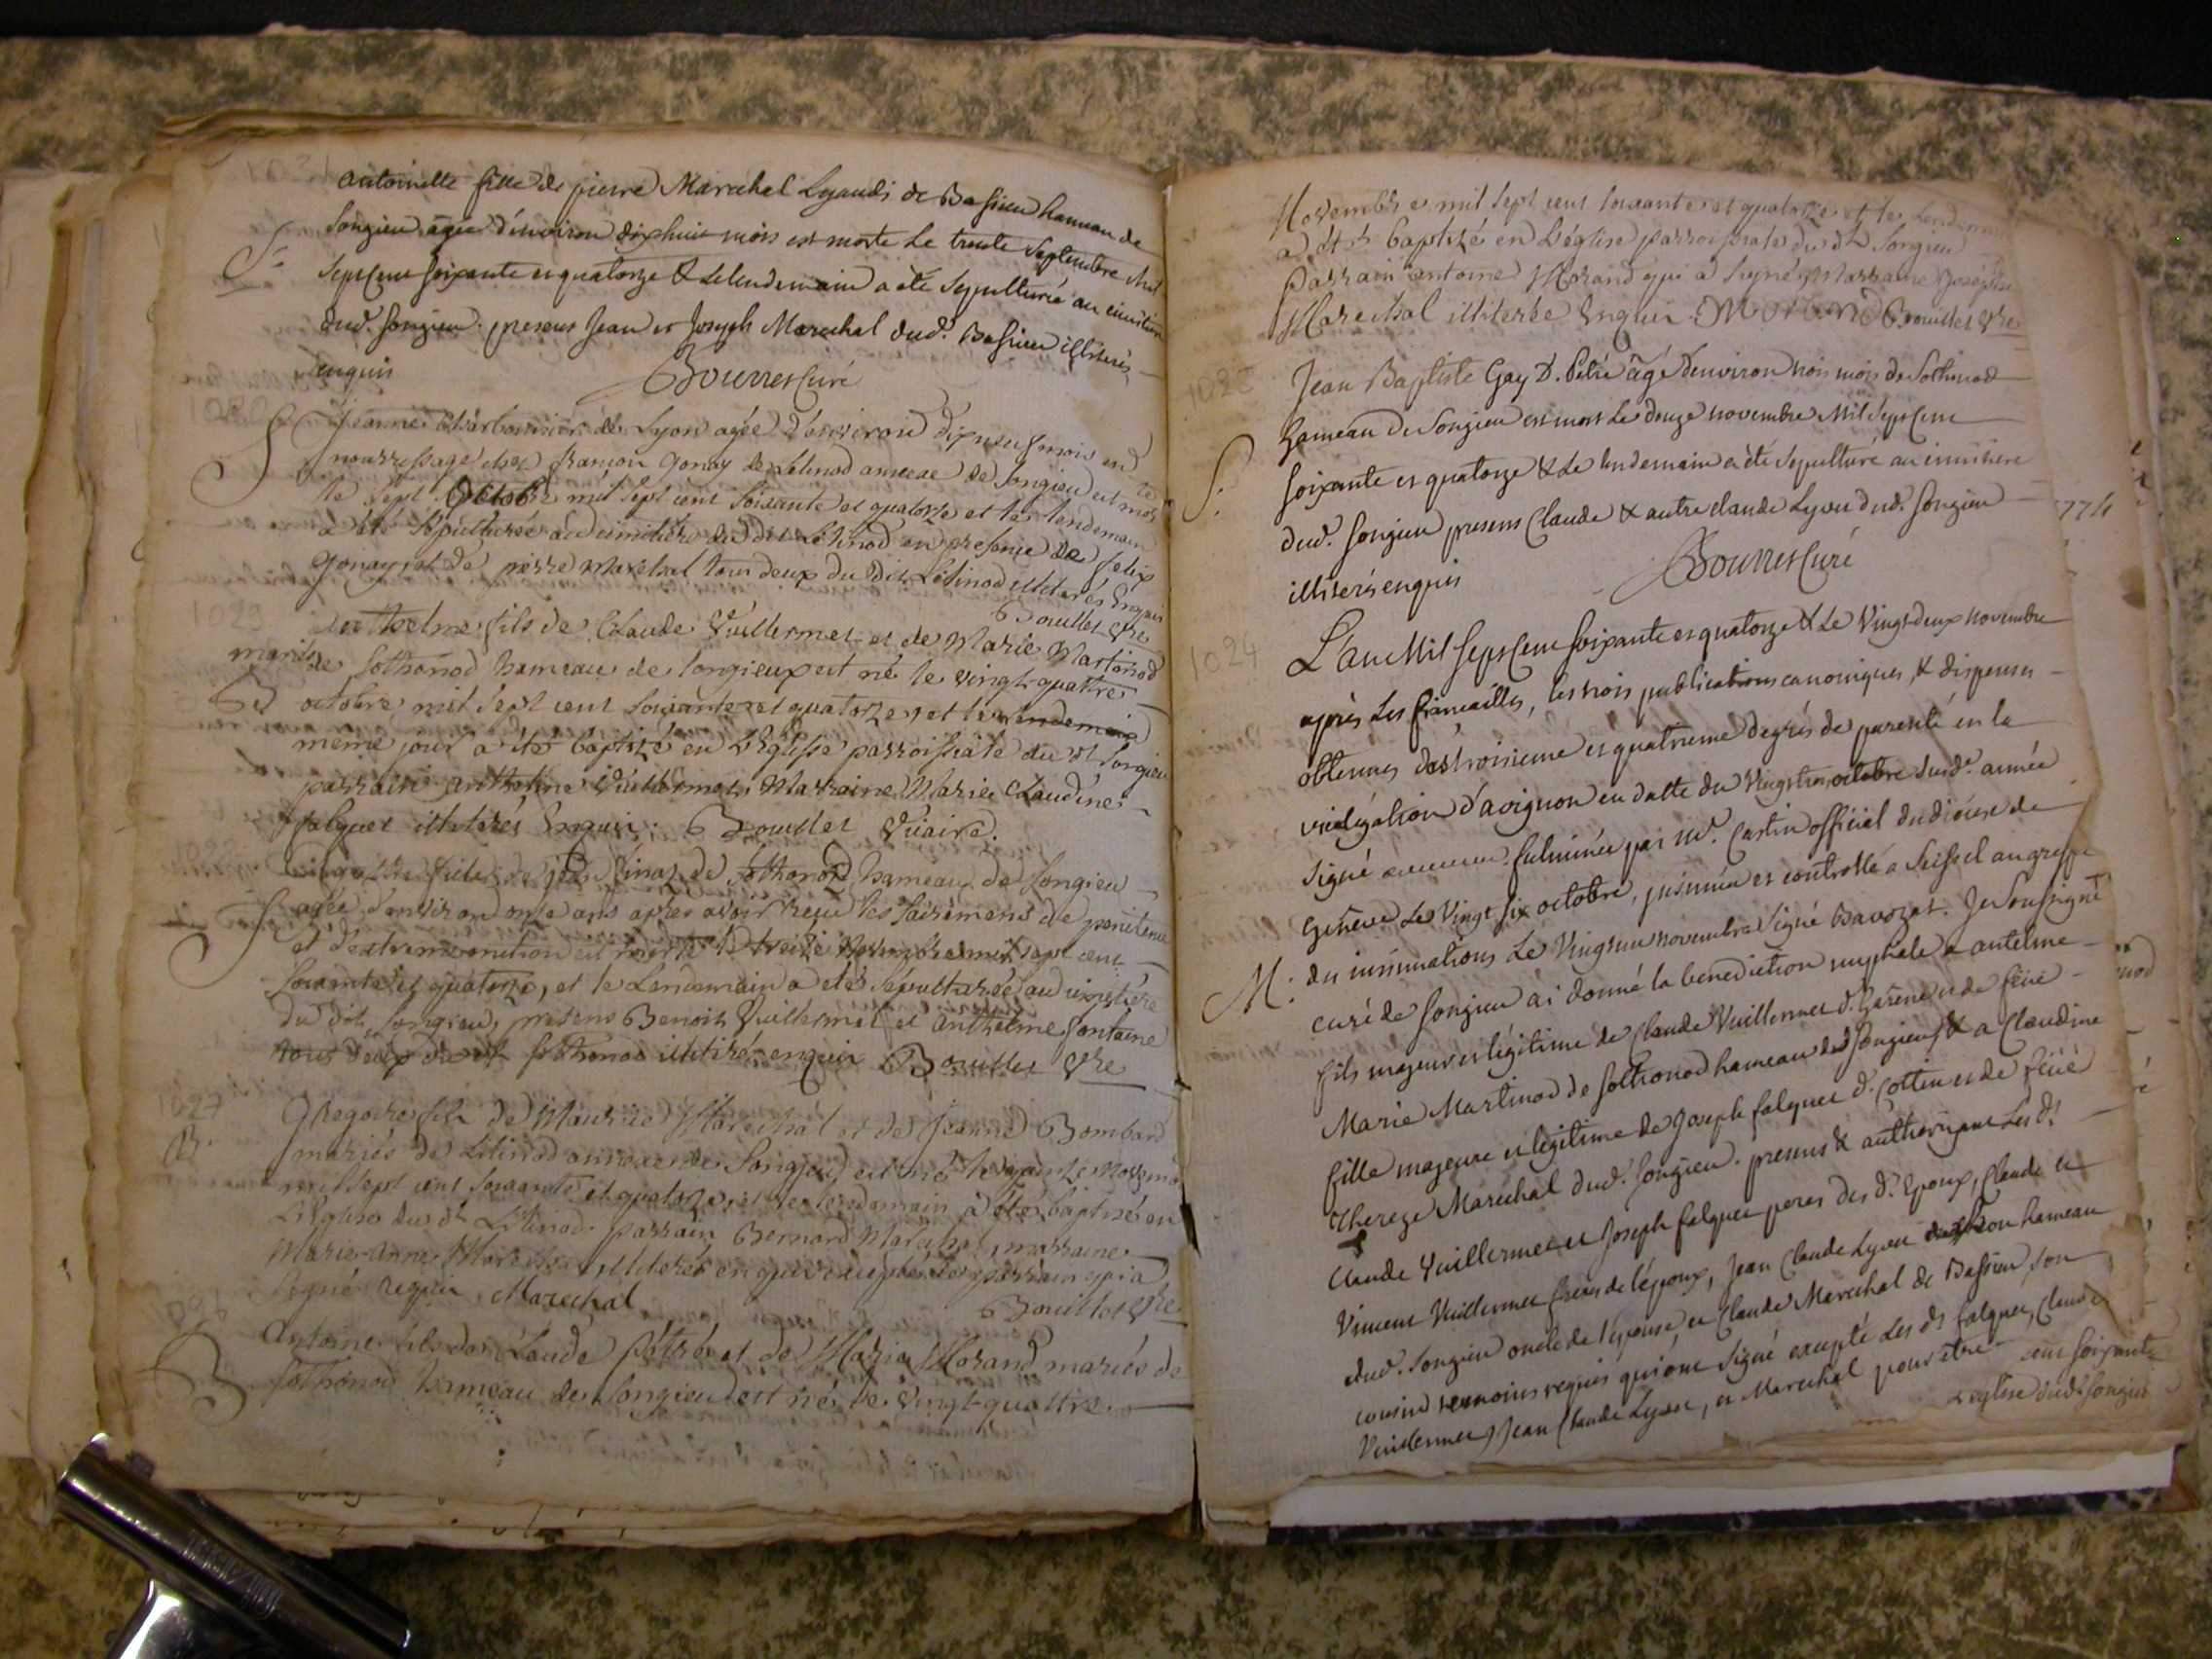 antoinette fille de pierre Marechal Lyaudi de Bassieu hameau de
Songieu agée d'environ dixhuit mois est morte Le trente Septembre Mil
S.
Septcent soixante et quatorze & Lelendemain a été Sepulturée au cimitiere
dud. songieu. presens Jean et Joseph Marechal dud. Bassieu illiterés
enquis
Bourret Curé
S
Jeanne Charbonnier de Lyon agée d'environ dixneuf mois en
nourrissage chez françoi Gonay de Litinod annexe de Songieu est morte
le sept Octobre mil sept cent soixante et quatorze et le lendemain
a été sepulturée au cimitière du dit Litinod en presence de felix
gonay, et de pierre Marechal tous deux du dit Litinod illiterés Enquis
Bouillet Vre
1029
anthelme fils de Claude Vuillermet et de Marie Martinod
mariés de Sothonod hameau de songieux est né le vingt-quattre
B
octobre mil sept cent soixante et quatorze, et le lendemain
même jour a été baptizé en L'Eglise parroissiale du dt Songieu
parrain anthelme Vuillermet, Marraine Marie Claudine
falquet illiterés Enquis. Bouillet Vicaire.
fille de Pinaz de Sothonod hameau de songieu
S
agée d'environ onze ans après avoir reçu les sacrèmens de penitence
et d'extremeonction est morte le treize Novembre mil sept cent
soixante et quatorze, et le Lendemain a été Sépulturée au cimetière
du dit songieu, presens Benoit Vuillermet et Anthelme fontaine
tous deux du dt Sothonod illitérés enquis Bouillet Vre
1027
B.
Gregoire fils de Maurice Marechal et de Jeanne Bombard
mariés de Litinod annexe de Songieu est né le quinze Novembre
mil sept cent soixante et quatorze, et le lendemain a été baptisé en
L'Eglise du dt Litinod. parrain Bernard Marechal, marraine
Marie-anne Marechal illiterés enquis excepté le parrain qui a
signé requis. Marechal
Bouillet Vre
B
Antoine fils de Claude Pétré et de Maria Morand mariés de
Sothonod hameau de songieu est né le vingt-quattre
Novembre mil sept cent soixante et quatorze et le Lendemain
a été baptizé en L'église parroissiale du dt Songieu
Parrain antoine Morand qui a signé Marraine Josephte
Marechal illiterée Enquis. Morand Bouillet Vre
1025
Jean Baptiste Gay D. Petré agé d'environ trois mois de Sothonod
hameau de Songieu est mort Le douze novembre Mil Septcent
S.
soixante et quatorze & Le lendemain a été Sepulturé au cimitiere
dud. songieu presens Claude & autre claude Lyvet dud. songieu
illiterés enquis
Bourret Curé
774
1024
L'an Mil Septcent soixante et quatorze & Le Vingt-deux novembre
après Les fiancailles, les trois publications canoniques, & dispenses
obtenues des troisieme et quatrieme degrés de parenté en la
vicelégation d'avignon en datte du Vingttrois octobre susd. année
signé fulminée par Md. Castin official du diocese de
Genève Le Vingt six octobre, insinuée et controllée a Seissel au greffe
M.
des insinuations Le Vingtun novembre Signé Davozat. Je Soussigné
curé de songieu ai donné la benediction nuptiale a antelme
fils majeur et légitime de Claude Vuillermet d. Garene et de feue
Marie Martinod de sothonod hameau dud Songieu, & a Claudine
fille majeure et legitime de Joseph falquet d. Cottin et de feue
Thereze Marechal dud. songieu. presens & authorisans Les dt
Claude Vuillermet et Joseph falquet peres des d. Epoux, Claude et
Vincent Vuillermet freres de l'époux, Jean Claude Lyvet hameau
dud. Songieu oncle de l'epouse, et Claude Marechal de Bassieu son
cousin temoins requis qui ont signé excepté Les dt falquet, Claude
Vuillermet, Jean Claude Lyvet, et Marechal pour etre
cent soixante
Leglise dud. songieu